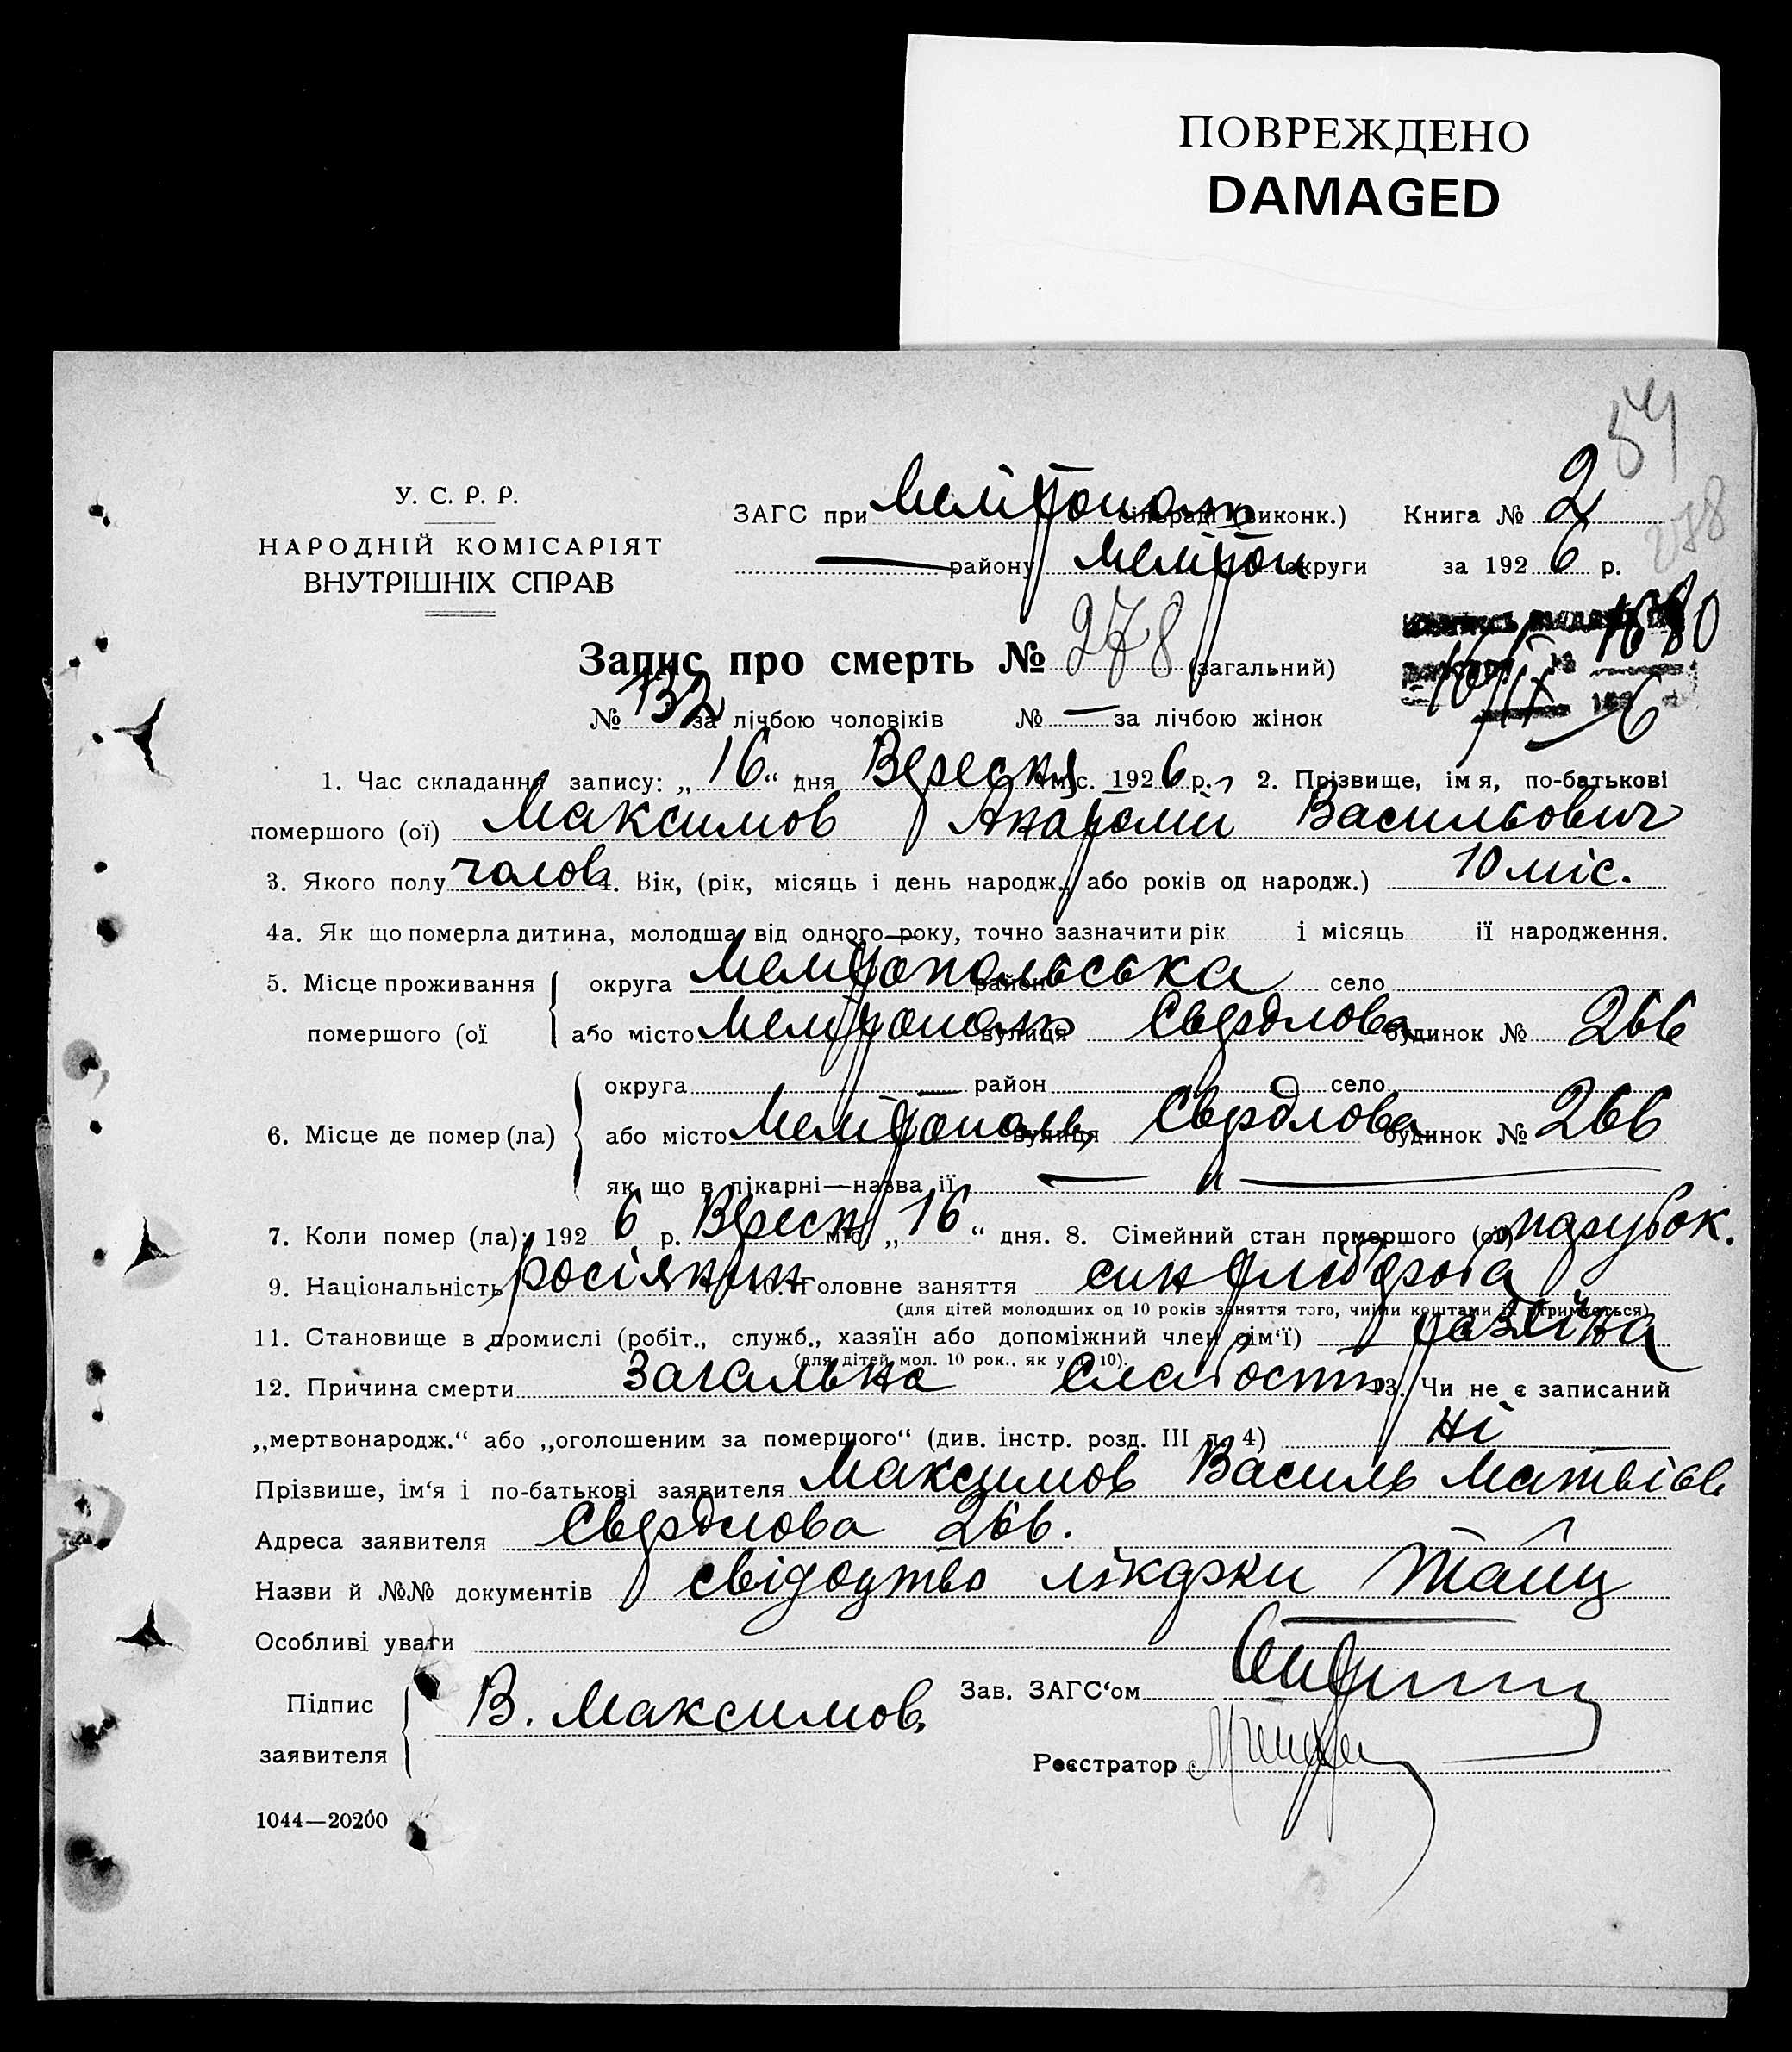 ПОВРЕЖДЕНО
DAMAGED
54
278
У. С. Р. Р.
НАРОДНІЙ КОМІСАРІЯТ
ВНУТРІШНІХ СПРАВ
ЗАГС при Мелітополь сільраді (виконк.) Книга № 2
— району Мелітоп округи за 1926 р.
1680
16/IX 6
Запис про смерть № 278 (загальний)
№ 132 за лічбою чоловіків № — за лічбою жінок
1. Час складання запису: „16“ дня Вересня міс. 1926 р. 2. Прізвище, імя, по-батькові
помершого (ої) Максимов Анатолій Васильович
3. Якого полу чолов 4. Вік, (рік, місяць і день народж., або років од народж.) 10 міс.
4а. Як що померла дитина, молодша від одного року, точно зазначити рік і місяць ії народження.
5. Місце проживання помершого (ої округа Мелітопольська район село
або місто Мелітополь вулиця Свердлова будинок № 266
6. Місце де помер (ла) округа — район село
або місто Мелітополь вулиця Свердлова будинок № 266
як що в лікарні—назва її — „ —
7. Коли помер (ла): 1926 р. Вересн міс. „16“ дня. 8. Сімейний стан помершого (ої) парубок.
9. Національність росіянин 10. Головне заняття син
(для дітей молодших од 10 років заняття того, чиїми коштами їх утримується)
11. Становище в промислі (робіт., служб., хазяїн або допоміжний член сім‘ї)
(для дітей мол. 10 рок., як у п. 10).
12. Причина смерти Загальна слабость 13. Чи не є записаний
„мертвонародж.“ або „оголошеним за помершого“ (див. інстр. розд. III п. 4) Ні
Прізвише, ім‘я і по-батькові заявителя Максимов Василь Матвієв
Адреса заявителя Свердлова 266.
Назви й №№ документів свідоцтво лікарки Тайц
Особливі уваги
Підпис заявителя В. Максимов Зав. ЗАГС‘ом
Реєстратор
1044—20200